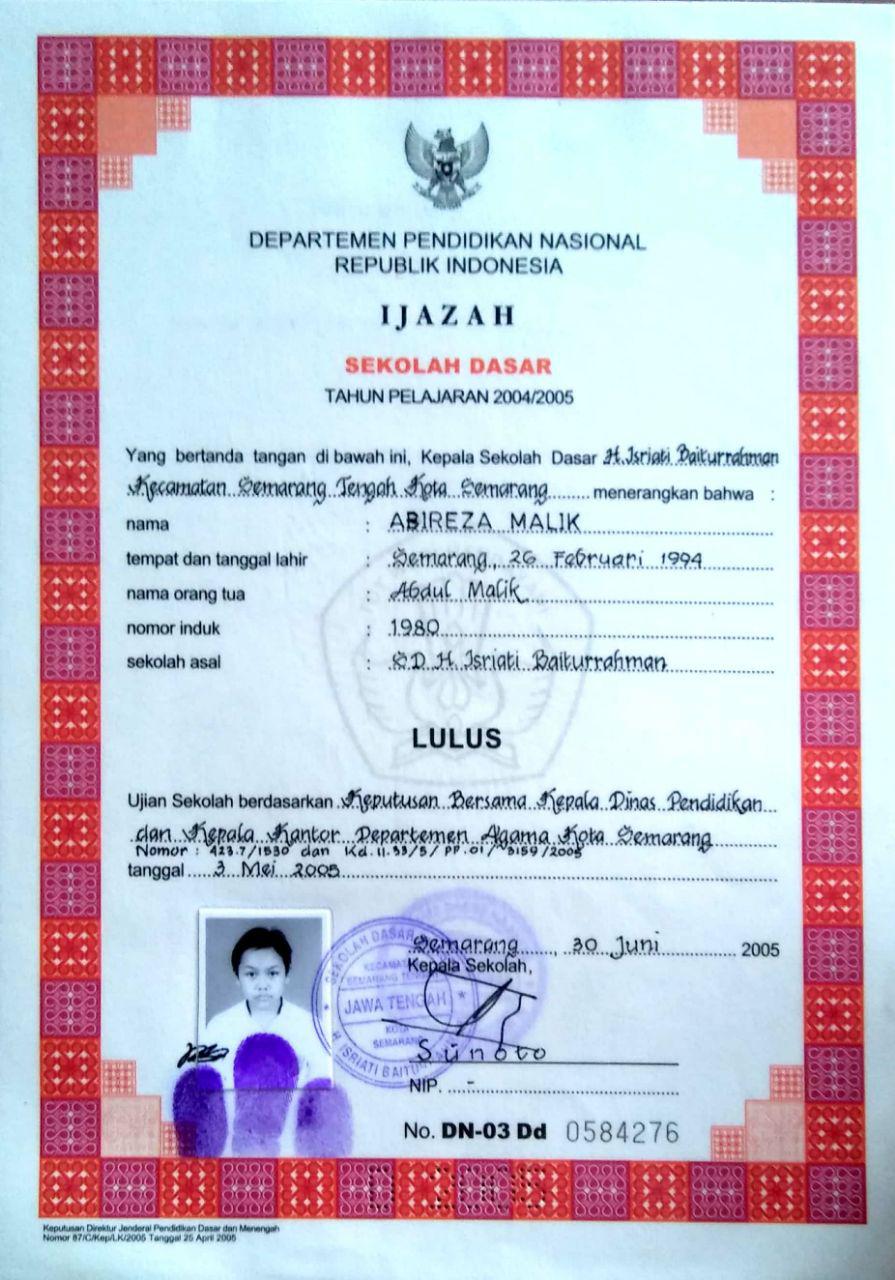 DEPARTEMEN PENDIDIKAN NASIONAL
REPUBLIK INDONESIA
IJAZAH
SEKOLAH DASAR
TAHUN PELAJARAN 2004/2005
Yang bertanda tangan di bawah ini, Kepala Sekolah Dasar H. Isriati Baiturrahman
Kecamatan Semarang Tengah Kota Semarang menerangkan bahwa :
nama : ABIREZA MALIK
tempat dan tanggal lahir : Semarang, 26 Februari 1994
nama orang tua : Abdul Malik
nomor induk : 1980
sekolah asal : SD H. Isriati Baiturrahman
LULUS
Ujian Sekolah berdasarkan Keputusan Bersama Kepala Dinas Pendidikan
dan Kepala Kantor Departemen Agama Kota Semarang
Nomor : 423.7/1530 dan Kd.11.33/5/PP.01/3159/2005
tanggal 3 Mei 2005
Semarang, 30 Juni 2005
Kepala Sekolah,
SEKOLAH DASAR
KECAMATAN
SEMARANG TENGAH
* JAWA TENGAH *
KOTA
SEMARANG
H. ISRIATI
Sunoto
NIP. -
No. DN-03 Dd 0584276
Keputusan Direktur Jenderal Pendidikan Dasar dan Menengah
Nomor 87/C/Kep/LK/2005 Tanggal 25 April 2005